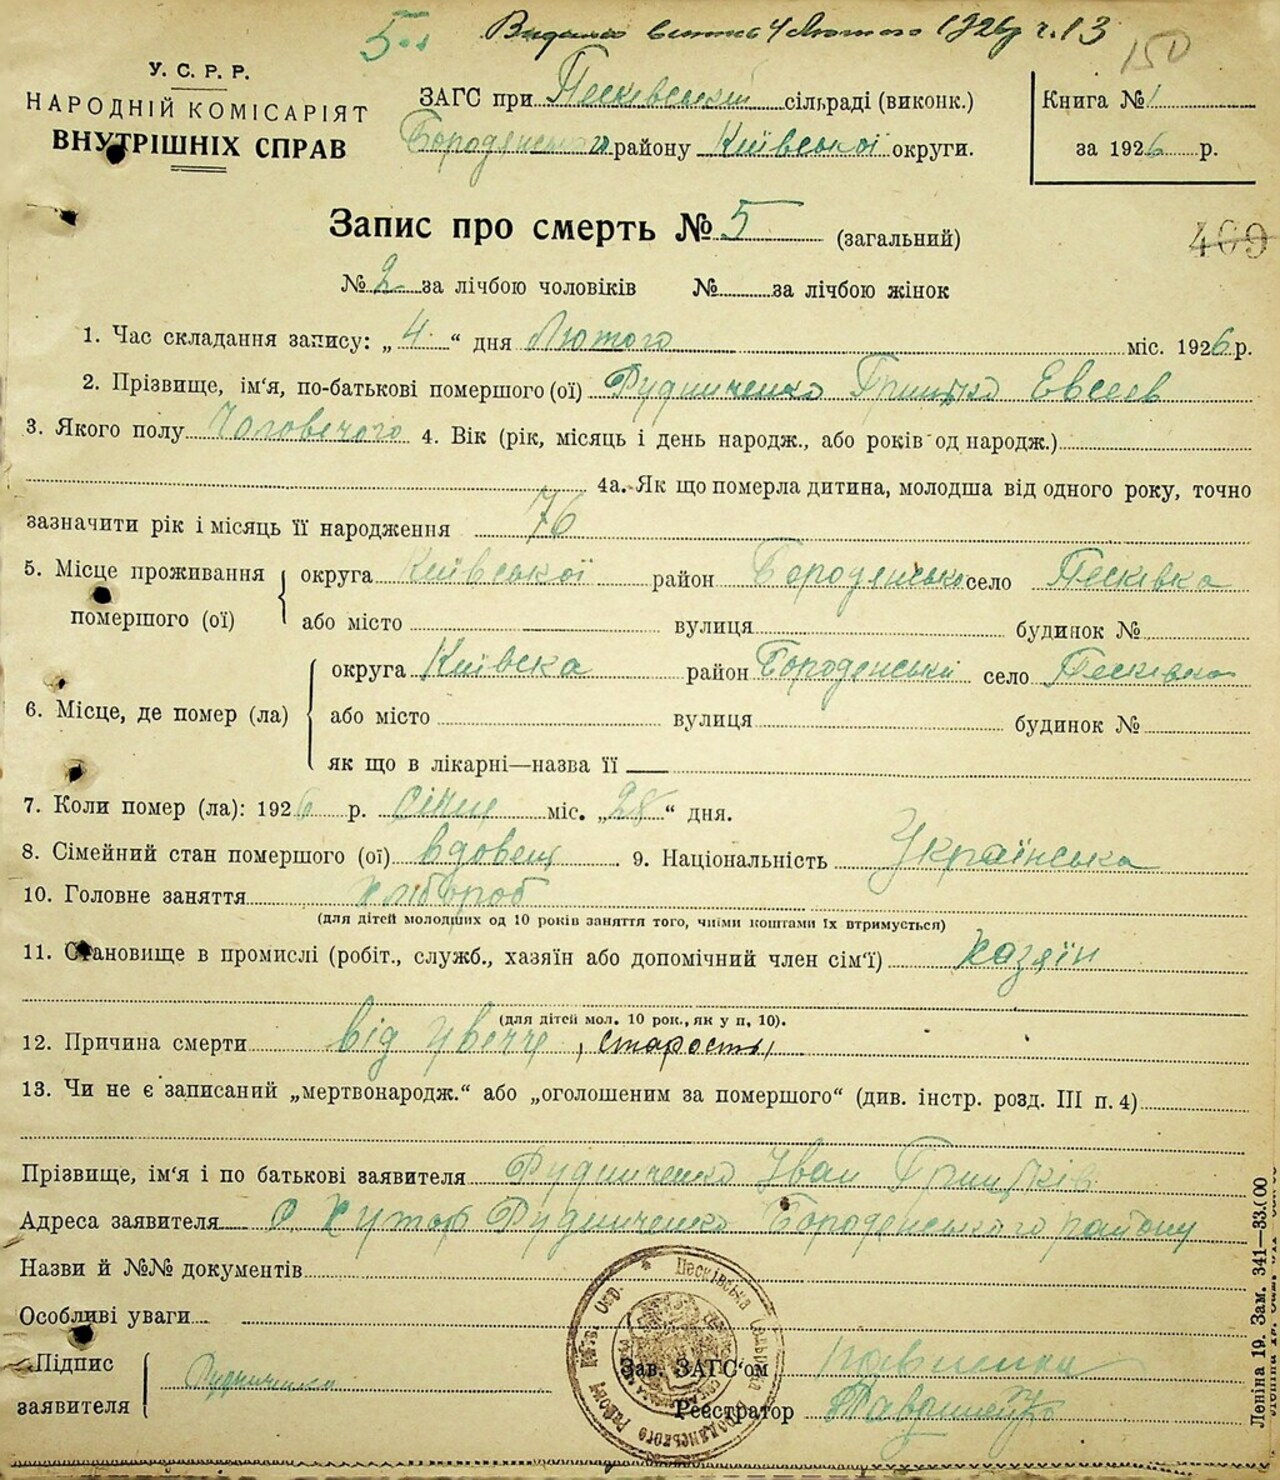 5.
Видано витяг 4 Лютого 1926 р ч. 13
150
У. С. Р. Р.
НАРОДНІЙ КОМІСАРІЯТ
ВНУТРІШНІХ СПРАВ
ЗАГС при Песківській сільраді (виконк.)
Бороденського району Київської округи.
Книга № 1
за 1926 р.
Запис про смерть № 5 (загальний)
409
№ 2 за лічбою чоловіків № за лічбою жінок
1. Час складання запису: „4“ дня Лютого міс. 1926 р.
2. Прізвище, ім'я, по-батькові помершого (ої) Рудниченко Грицько Евсеев
3. Якого полу Чоловечого 4. Вік (рік, місяць і день народж., або років од народж.)
4а. Як що померла дитина, молодша від одного року, точно
зазначити рік і місяць її народження 76
5. Місце проживання помершого (ої) округа Київської район Бороденсько село Песківка
або місто вулиця будинок №
6. Місце, де помер (ла) округа Київска район Бороденській село Песківка
або місто вулиця будинок №
як що в лікарні—назва її
7. Коли помер (ла): 1926 р. Січня міс. „28“ дня.
8. Сімейний стан помершого (ої) вдовець 9. Національність Українська
10. Головне заняття хлібороб
(для дітей молодших од 10 років заняття того, чиїми коштами їх втримується)
11. Становище в промислі (робіт., служб., хазяїн або допомічний член сім'ї) хазяїн
(для дітей мол. 10 рок., як у п. 10).
12. Причина смерти від , старость
13. Чи не є записаний „мертвонародж.“ або „оголошеним за помершого“ (див. інстр. розд. III п. 4)
Прізвище, ім'я і по батькові заявителя Рудниченко Іван Грицьків
Адреса заявителя Хутор Рудниченко Бороденського району
Назви й №№ документів
Особливі уваги
Підпис заявителя Рудниченко
Зав. ЗАГС'ом
Реєстратор
Песківська Сільська Рада Бородянського Району Київ. Окр.
Леніна 19. Зам. 341—33.00